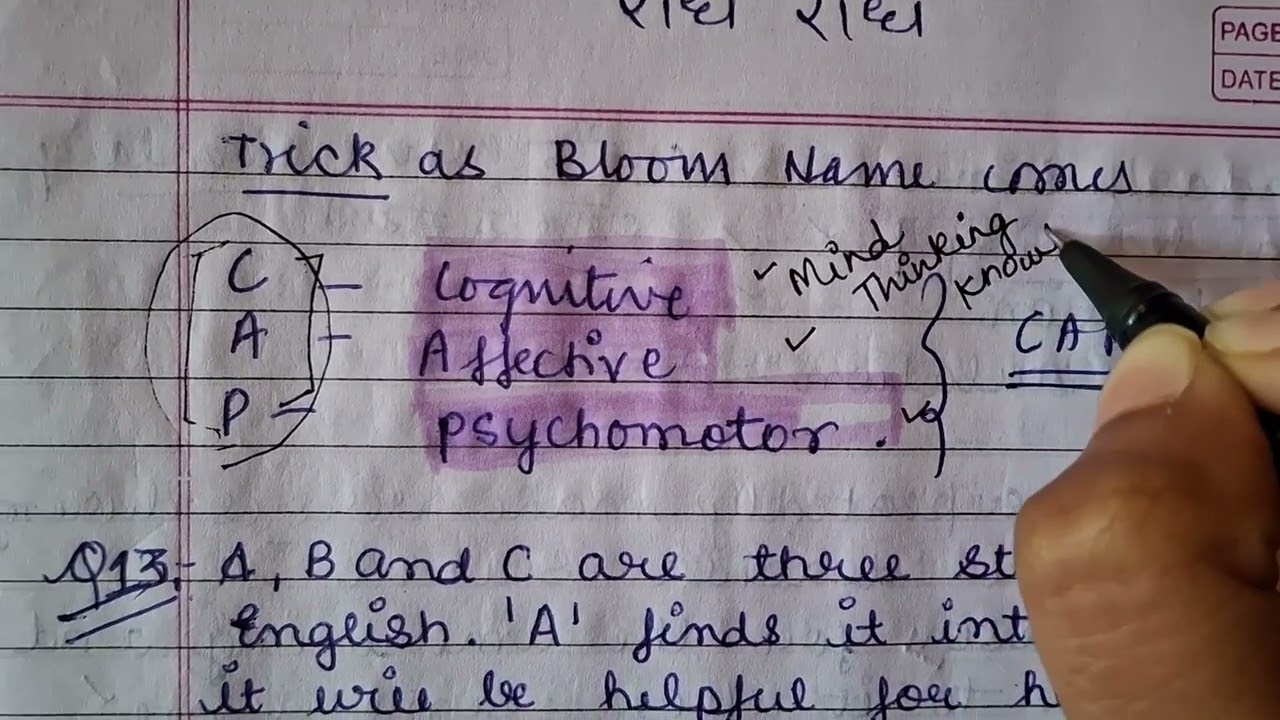 राधा राधा
PAGE
DATE
Trick as Bloom Name comes
C — Cognitive ✓ Mind
Thinking
Know
A — Affective ✓
P = Psychomotor.
CA
Q13:- A, B and C are three
English. 'A' finds it
it will be helpful for